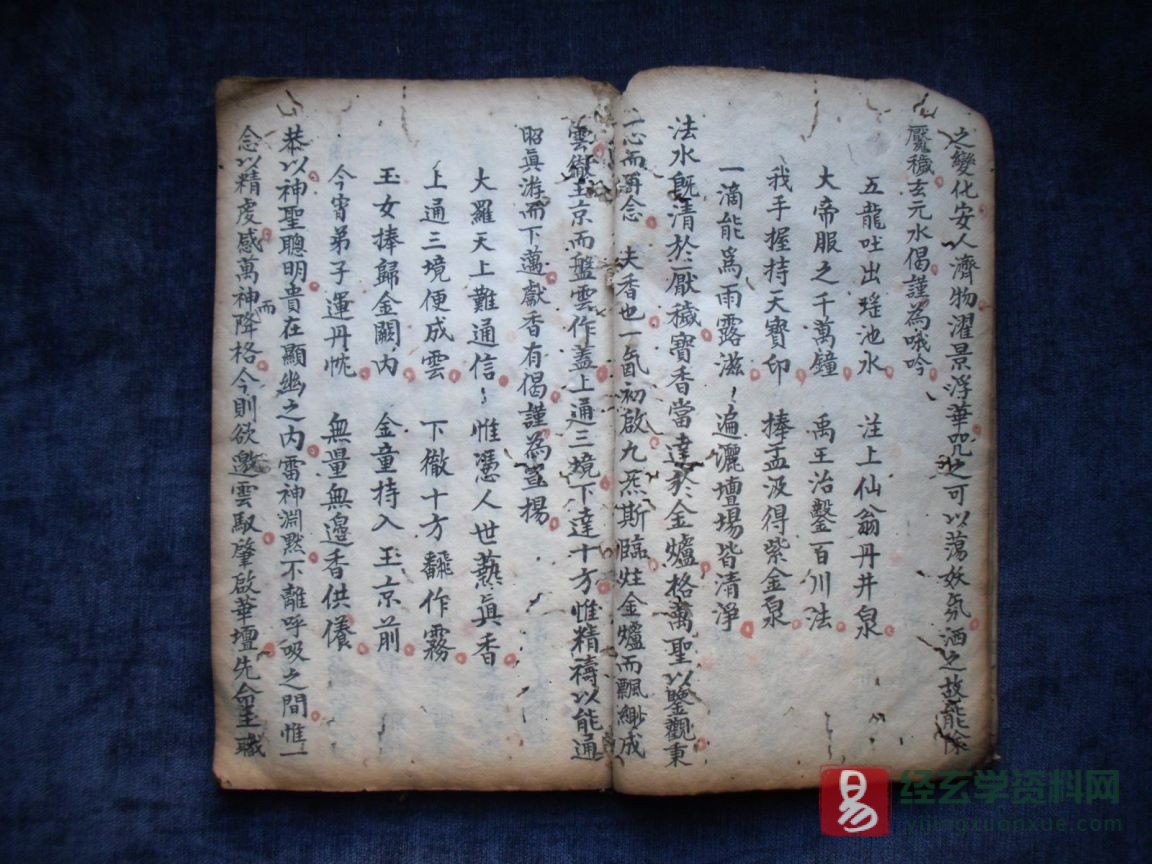 之變化安人濟物濯景浮華咒之可以蕩妖氛洒之故能除
魘穢玄元水偈謹為哦吟
五龍吐出瑶池水 注上仙翁丹井泉
大帝服之千萬鐘 禹王治鑿百川法
我手握持天寶印 捧盂汲得紫金泉
一滴能爲雨露滋 遍灑壇場皆清淨
法水旣清於厭穢寳香當達於金爐格萬聖以鑒觀東
一心而爵念 夫香也一炁初啟九炁斯臨炷金爐而飄緲成
雲徹玉京而盤雲作蓋上通三境下達十方惟精禱以能通
昭眞游而下邁獻香有偈謹為宣揚
大羅天上難通信 惟憑人世爇眞香
上通三境便成雲 下徹十方飜作霧
玉女捧歸金闕内 金童持入玉京前
今宵弟子運丹忱 無量無邉香供養
恭以神聖聰明貴在顯幽之内雷神淵黙不離呼吸之間惟一
念以精虔感萬神而降格今則欲邀雲馭肇啟華壇先命主職
易
经玄学资料网
yijingxuanxue.com